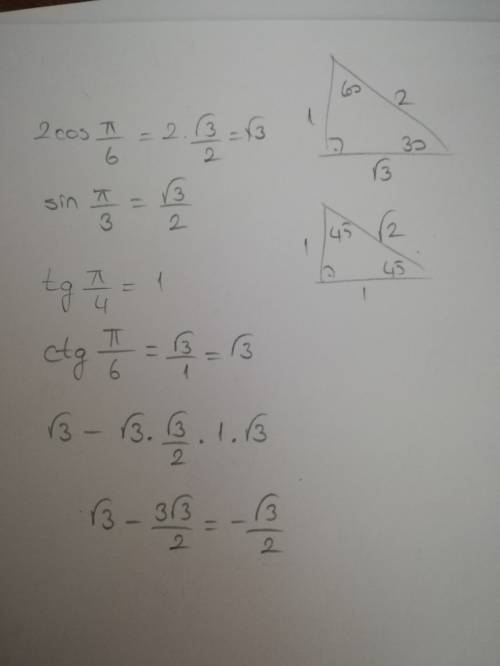 2cos π/6 = 2·√3/2 = √3
sin π/3 = √3/2
tg π/4 = 1
ctg π/6 = √3/1 = √3
√3 − √3·√3/2·1·√3
√3 − 3√3/2 = −√3/2
60
1
2
30
√3
45
1
√2
45
1